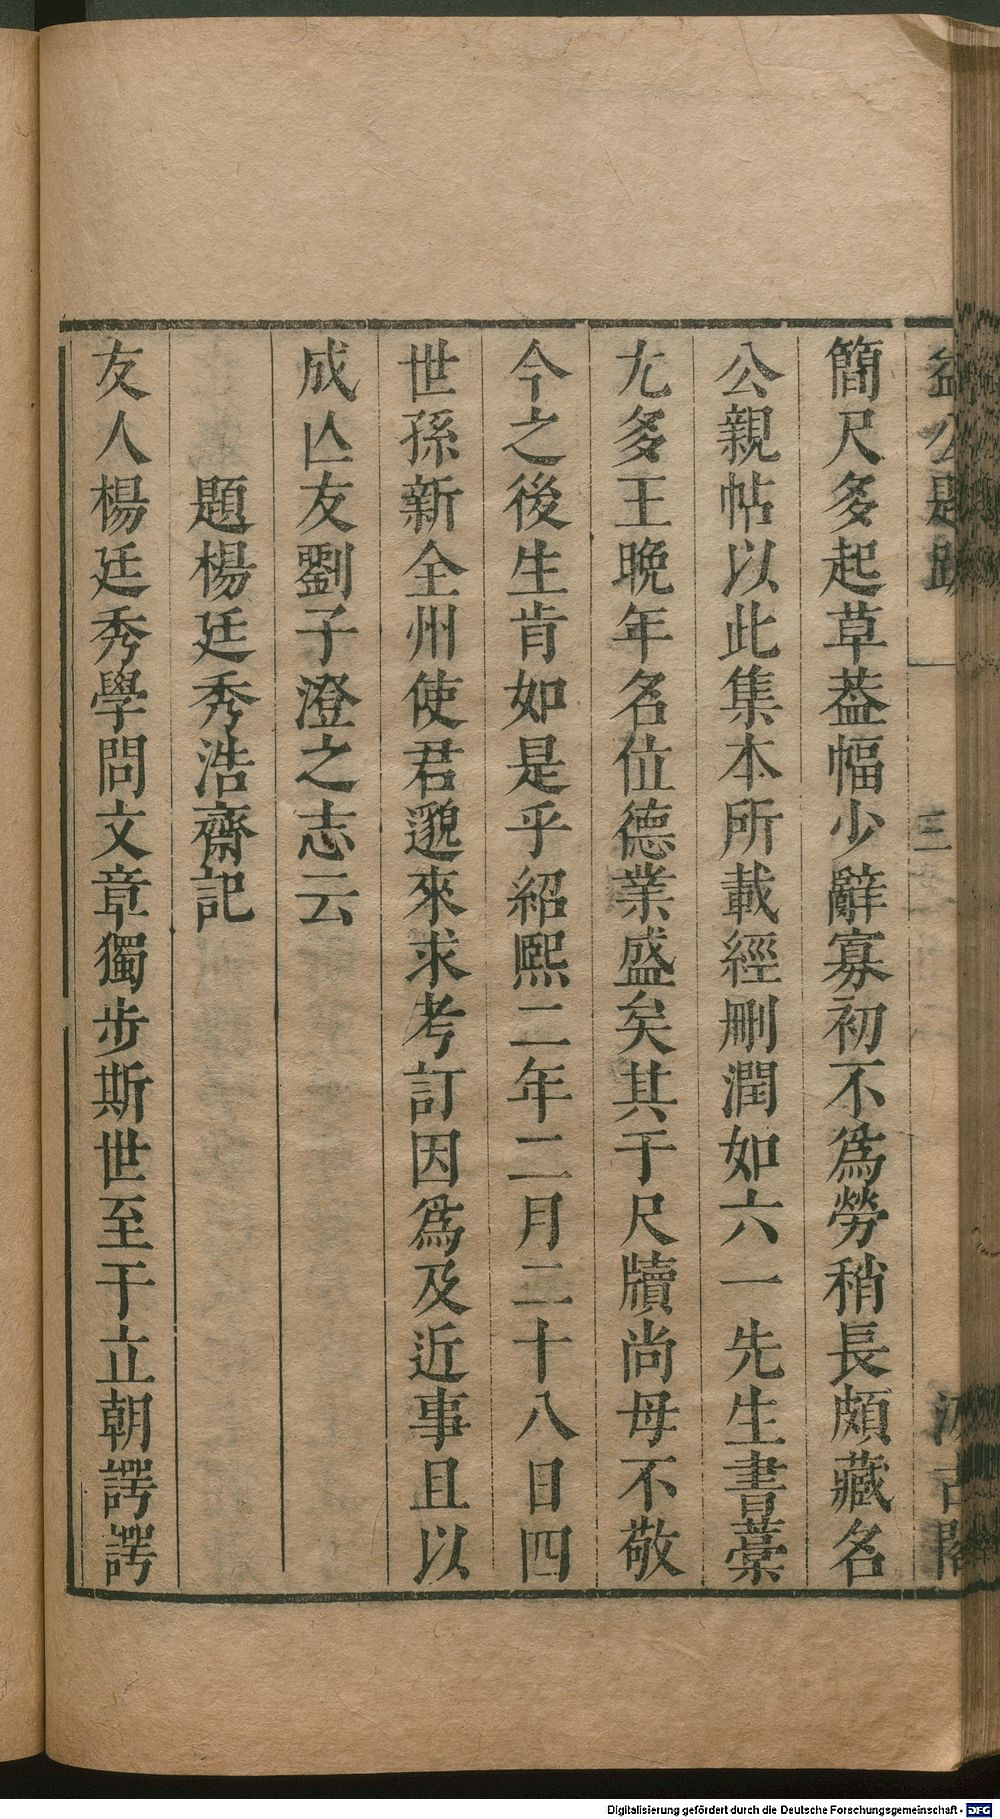 益公題跋 三 汲古閣
簡尺多起草葢幅少辭寡初不爲勞稍長頗藏名
公親帖以此集本所載經刪潤如六一先生書藁
尢多王晚年名位德業盛矣其于尺牘尚毋不敬
今之後生肯如是乎紹熙二年二月二十八日四
世孫新全州使君邈來求考訂因爲及近事且以
成亾友劉子澄之志云
題楊廷秀浩齋記
友人楊廷秀學問文章獨步斯世至于立朝諤諤
Digitalisierung gefördert durch die Deutsche Forschungsgemeinschaft - DFG